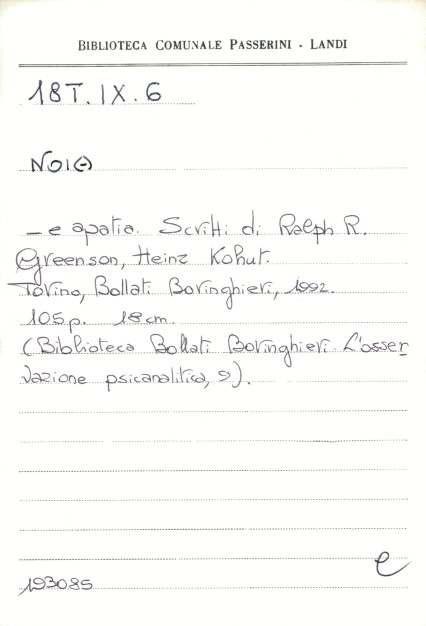 BIBLIOTECA COMUNALE PASSERINI - LANDI
18T. IX. 6
NOIA
– e apatia. Scritti di Ralph R.
Greenson, Heinz Kohut.
Torino, Bollati Boringhieri, 1992.
105 p. 18 cm.
(Biblioteca Bollati Boringhieri. L'osser
vazione psicanalitica, 9).
e
193085